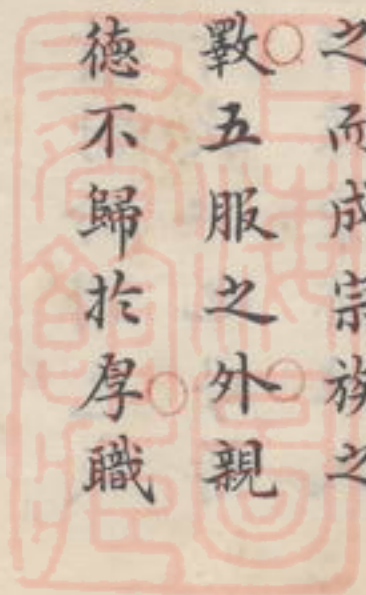 之而成宗族之
斁五服之外親
德不歸於厚職